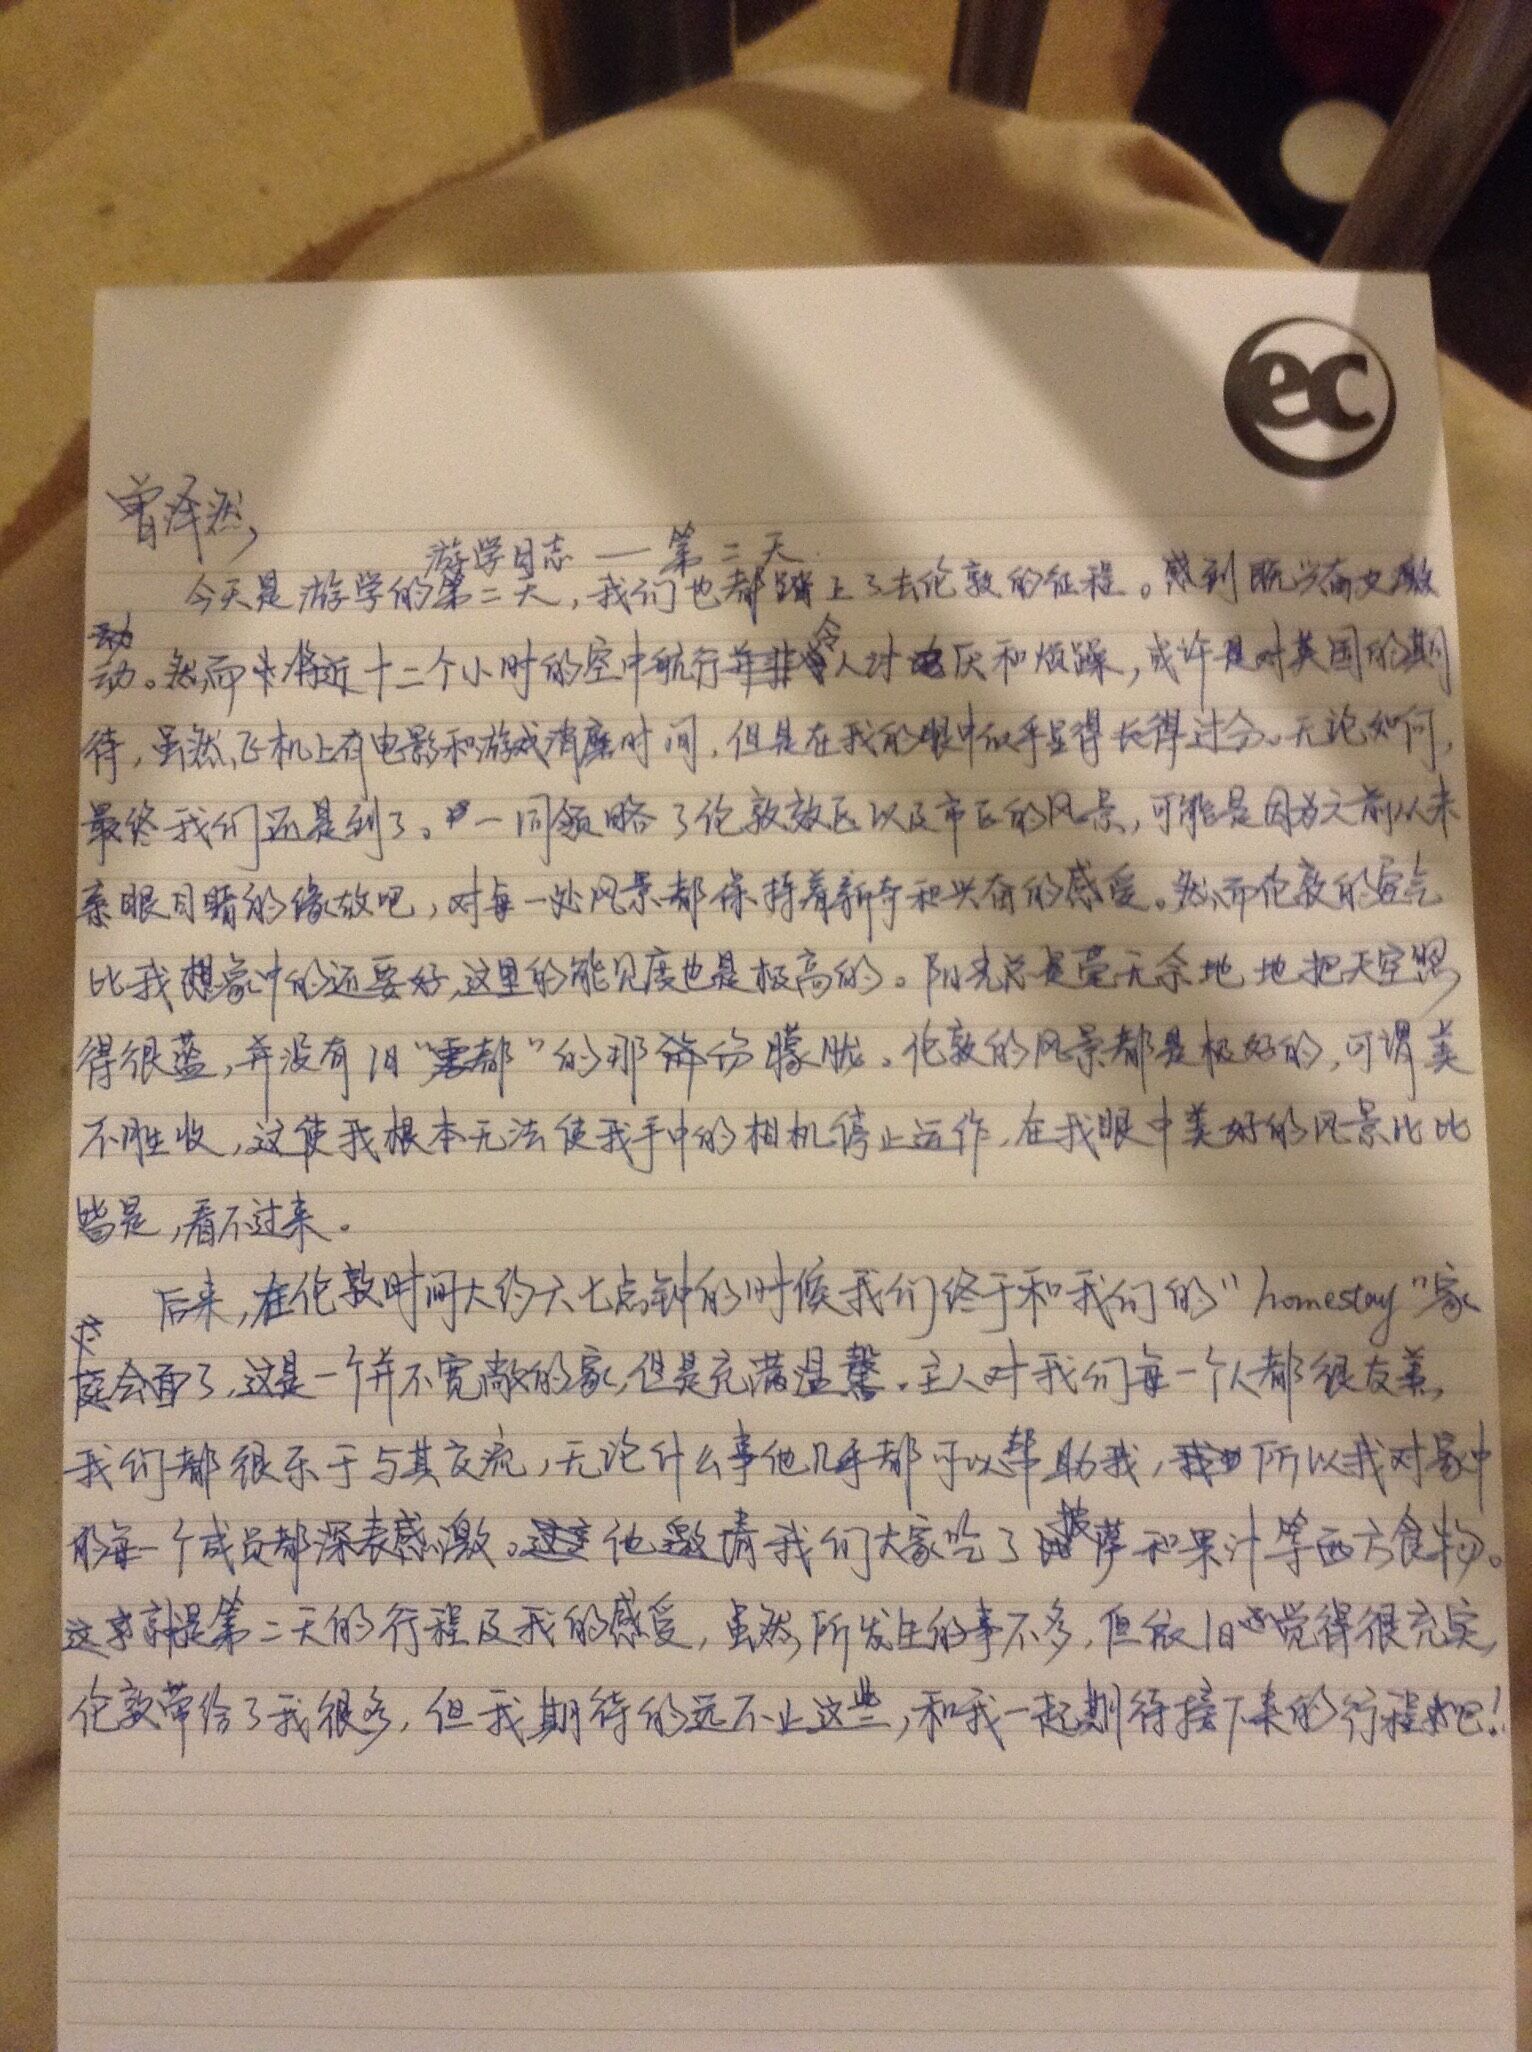 ec
曾泽然,
游学日志 — 第二天
今天是游学的第二天,我们也都踏上了去伦敦的征程。感到既兴奋又激
动。然而将近十二个小时的空中航行令人讨厌和烦躁,或许是对英国的期
待,虽然飞机上有电影和游戏消磨时间,但是在我的眼中似乎显得长得过分。无论如何,
最终我们还是到了。一同领略了伦敦效区以及市区的风景,可能是因为之前从未
亲眼目睹的缘故吧,对每一处风景都保持着新奇和兴奋的感受。然而伦敦的空气
比我想象中的还要好,这里的能见度也是极高的。阳光总是毫无余地地把天空照
得很蓝,并没有旧“雾都”的那份朦胧。伦敦的风景都是极好的,可谓美
不胜收,这使我根本无法使我手中的相机停止运作,在我眼中美好的风景比比
皆是,看不过来。
后来,在伦敦时间大约六七点钟的时候我们终于和我们的“homestay”家
庭会面了,这是一个并不宽敞的家,但是充满温馨。主人对我们每一个人都很友善,
我们都很乐于与其交流,无论什么事他几乎都可以帮助我,所以我对家中
的每一个成员都深表感激。他邀请我们大家吃了披萨和果汁等西方食物。
这就是第二天的行程及我的感受,虽然所发生的事不多,但依旧觉得很充实,
伦敦带给了我很多,但我期待的远不止这些,和我一起期待接下来的行程吧!